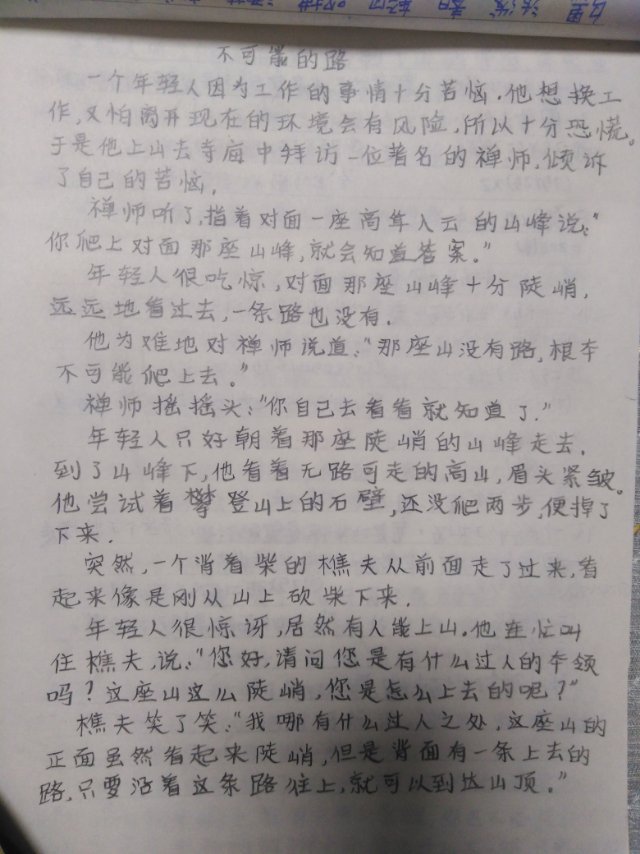 不可能的路
一个年轻人因为工作的事情十分苦恼.他想换工
作,又怕离开现在的环境会有风险,所以十分恐慌。
于是他上山去寺庙中拜访一位著名的禅师,倾诉
了自己的苦恼.
禅师听了,指着对面一座高耸入云的山峰说:“
你爬上对面那座山峰,就会知道答案.”
年轻人很吃惊,对面那座山峰十分陡峭,
远远地看过去,一条路也没有.
他为难地对禅师说道:“那座山没有路,根本
不可能爬上去。”
禅师摇摇头:“你自己去看看就知道了.”
年轻人只好朝着那座陡峭的山峰走去.
到了山峰下,他看着无路可走的高山,眉头紧皱。
他尝试着攀登山上的石壁,还没爬两步,便掉了
下来.
突然,一个背着柴的樵夫从前面走了过来,看
起来像是刚从山上砍柴下来.
年轻人很惊讶,居然有人能上山.他连忙叫
住樵夫,说:“您好,请问您是有什么过人的本领
吗?这座山这么陡峭,您是怎么上去的呢?”
樵夫笑了笑:“我哪有什么过人之处,这座山的
正面虽然看起来陡峭,但是背面有一条上去的
路.只要沿着这条路往上,就可以到达山顶。”